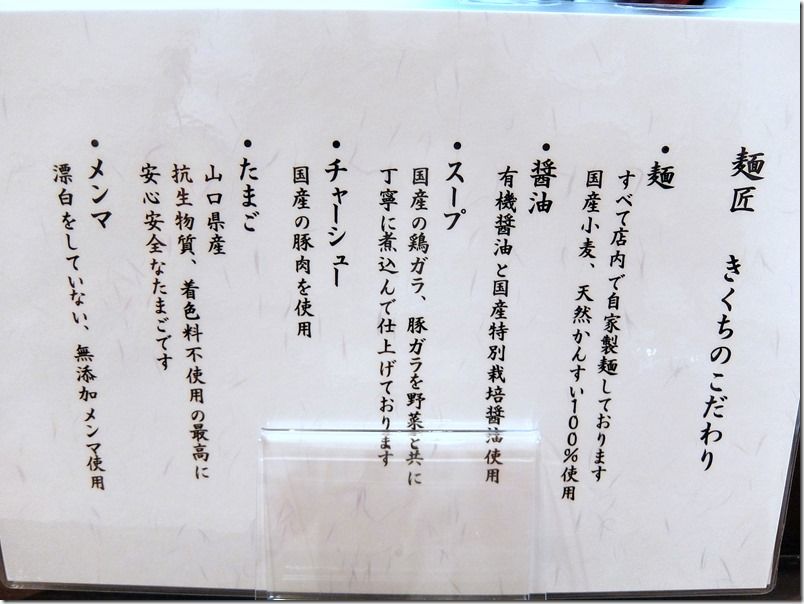 麺匠　きくちのこだわり
・麺
すべて店内で自家製麺しております
国産小麦、天然かんすい100%使用
・醤油
有機醤油と国産特別栽培醤油使用
・スープ
国産の鶏ガラ、豚ガラを野菜と共に
丁寧に煮込んで仕上げております
・チャーシュー
国産の豚肉を使用
・たまご
山口県産
抗生物質、着色料不使用の最高に
安心安全なたまごです
・メンマ
漂白をしていない、無添加メンマ使用